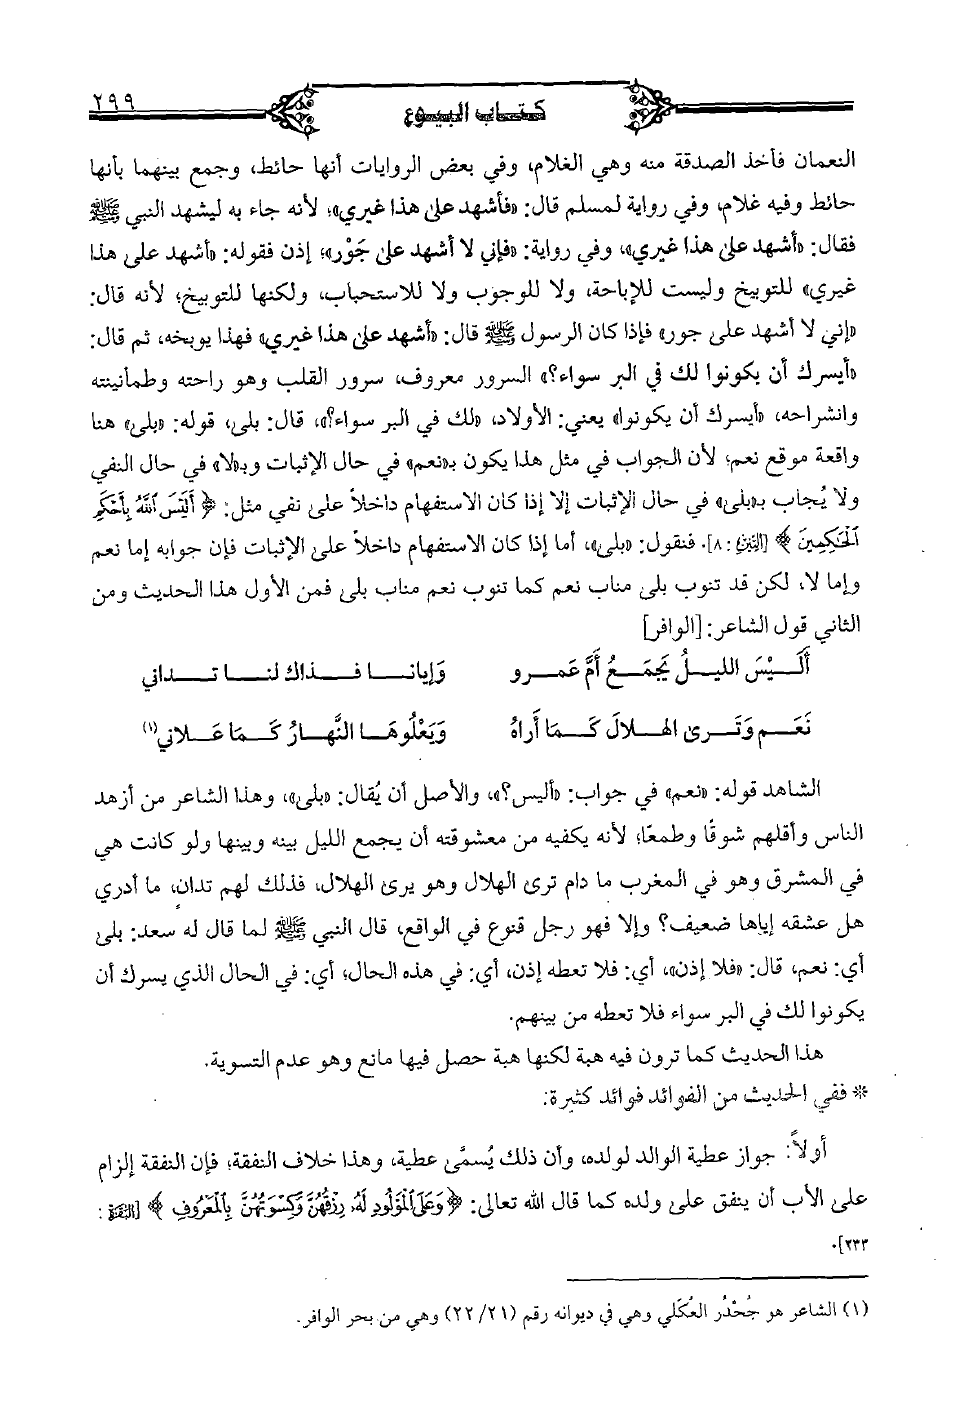 كتاب البيوع
٢٩٩
النعمان فأخذ الصدقة منه وهي الغلام، وفي بعض الروايات أنها حائط، وجمع بينهما بأنها
حائط وفيه غلام، وفي رواية لمسلم قال: «فأشهد على هذا غيري»؛ لأنه جاء به ليشهد النبي ﷺ
فقال: «أشهد على هذا غيري»، وفي رواية: «فإني لا أشهد على جَوْر»؛ إذن فقوله: «أشهد على هذا
غيري» للتوبيخ وليست للإباحة، ولا للوجوب ولا للاستحباب، ولكنها للتوبيخ؛ لأنه قال:
«إني لا أشهد على جور» فإذا كان الرسول ﷺ قال: «أشهد على هذا غيري» فهذا يوبخه، ثم قال:
«أيسرك أن يكونوا لك في البر سواء؟» السرور معروف، سرور القلب وهو راحته وطمأنينته
وانشراحه، «أيسرك أن يكونوا» يعني: الأولاد، «لك في البر سواء؟»، قال: بلى، قوله: «بلى» هنا
واقعة موقع نعم؛ لأن الجواب في مثل هذا يكون بـ«نعم» في حال الإثبات وبـ«لا» في حال النفي
ولا يُجاب بـ«بلى» في حال الإثبات إلا إذا كان الاستفهام داخلاً على نفي مثل: ﴿أَلَيْسَ ٱللَّهُ بِأَحْكَمِ
ٱلْحَٰكِمِينَ﴾ [التين: ٨]. فنقول: «بلى»، أما إذا كان الاستفهام داخلاً على الإثبات فإن جوابه إما نعم
وإما لا، لكن قد تنوب بلى مناب نعم كما تنوب نعم مناب بلى فمن الأول هذا الحديث ومن
الثاني قول الشاعر: [الوافر]
أَلَيْسَ الليلُ يَجمَعُ أمَّ عَمرو وَإيانا فذاك لنا تداني
نَعَم وَتَرى الهلالَ كَمَا أَراهُ وَيَعْلُوهَا النَّهارُ كَمَا عَلاني(١)
الشاهد قوله: «نعم» في جواب: «أليس؟»، والأصل أن يُقال: «بلى»، وهذا الشاعر من أزهد
الناس وأقلهم شوقًا وطمعًا؛ لأنه يكفيه من معشوقته أن يجمع الليل بينه وبينها ولو كانت هي
في المشرق وهو في المغرب ما دام ترى الهلال وهو يرى الهلال، فذلك لهم تدانٍ، ما أدري
هل عشقه إياها ضعيف؟ وإلا فهو رجل قنوع في الواقع، قال النبي ﷺ لما قال له سعد: بلى
أي: نعم، قال: «فلا إذن»، أي: فلا تعطه إذن، أي: في هذه الحال؛ أي: في الحال الذي يسرك أن
يكونوا لك في البر سواء فلا تعطه من بينهم.
هذا الحديث كما ترون فيه هبة لكنها هبة حصل فيها مانع وهو عدم التسوية.
* ففي الحديث من الفوائد فوائد كثيرة:
أولاً: جواز عطية الوالد لولده، وأن ذلك يُسمَّى عطية، وهذا خلاف النفقة؛ فإن النفقة إلزام
على الأب أن ينفق على ولده كما قال الله تعالى: ﴿وَعَلَى ٱلْمَوْلُودِ لَهُۥ رِزْقُهُنَّ وَكِسْوَتُهُنَّ بِٱلْمَعْرُوفِ﴾ [البقرة:
٢٣٣].
(١) الشاعر هو جُحْدُر العُكَلي وهي في ديوانه رقم (٢٢/٢١) وهي من بحر الوافر.